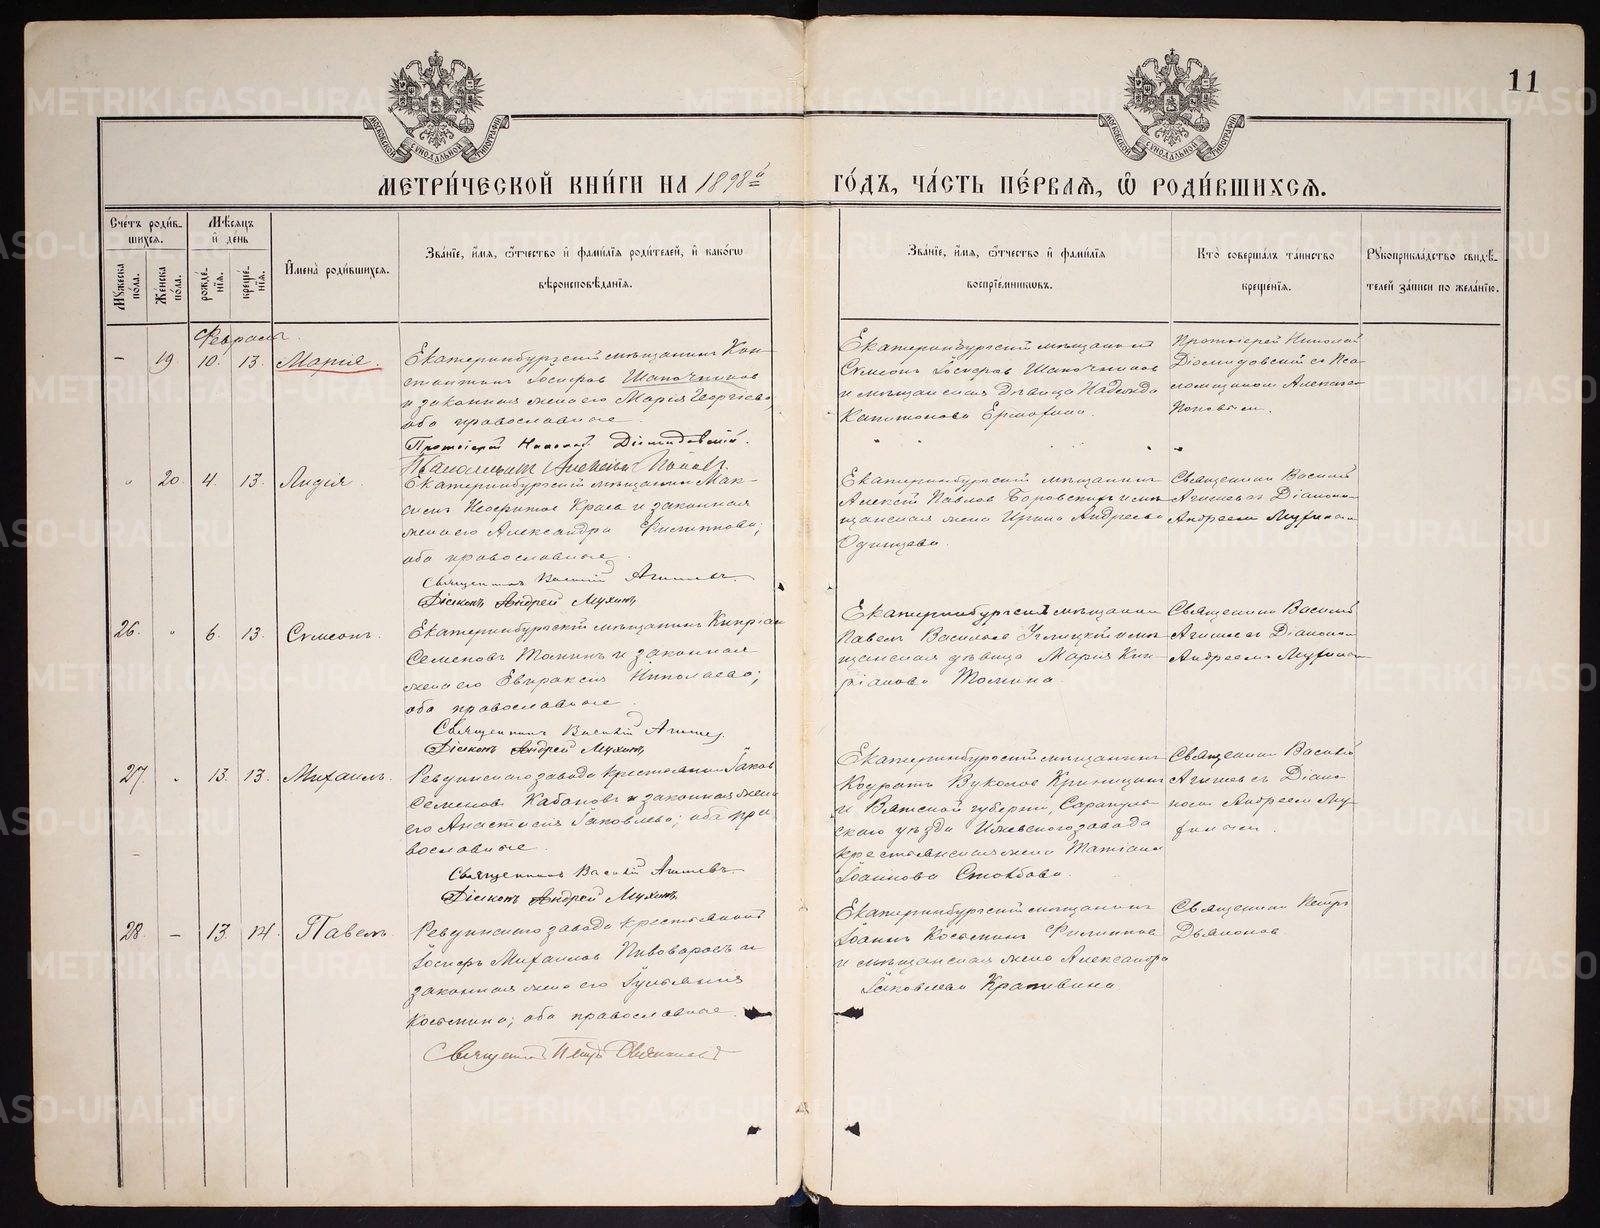 11
МОСКОВСКОЙ СѴНОДАЛЬНОЙ ТИПОГРАФІИ
МОСКОВСКОЙ СѴНОДАЛЬНОЙ ТИПОГРАФІИ
МЕТРИ́ЧЕСКОЙ КНИ́ГИ НА 1898й
ГО́ДЪ, ЧА́СТЬ ПЕ́РВАЯ, Ѽ РОДИ́ВШИХСЯ.
Сче́тъ роди́в-
шихся.
Мꙋ́жеска по́ла.
Же́нска по́ла.
Мѣ́сяцъ
и҆ де́нь
рожде́нїя.
креще́нїя.
И҆мена̀ роди́вшихся.
Зва́нїе, и҆́мя, ѻ҆́тчество и҆ фами́лїя роди́телей, и҆ како́гѡ
вѣроисповѣ́данїя.
Зва́нїе, и҆́мя, ѻ҆́тчество и҆ фами́лїя
воспрїе́мниковъ.
Кто̀ соверша́лъ та́инство
креще́нїя.
Рꙋкоприкла́дство свидѣ́-
телей за́писи по жела́нїю.
Февраль.
– 19 10. 13. Мария.
Екатеринбургскій мѣщанинъ Кон-
стантинъ Іосифовъ Шапочников
и законная жена его Марія Георгіева,
оба православные.
Протоіерей Николай Діомидовскій.
Псаломщикъ Алексѣй Поповъ.
Екатеринбургскій мѣщанинъ
Сѵмеонъ Іосифовъ Шапочников
и мѣщанская дѣвица Надежда
Капитонова Ермохина.
Протоіерей Николай
Діомидовский съ Пса-
ломщиком Алексеем
Поповым.
" 20. 4. 13. Лидія.
Екатеринбургскій мѣщанин Мак-
и законная
жена его Александра Филиппова;
оба православные.
Священникъ Василій Агишевъ.
Діаконъ Андрей Мухинъ
Екатеринбургскій мѣщанинъ
Алексѣй Павлов Боровскихъ и мѣ-
щанская жена Ирина Андреева
Одинцева.
Священник Василий
Агишев съ Діаконом
Андреем Мухиным
26. " 6. 13. Сѵмеонъ.
Екатеринбургскій мѣщанинъ Кипріан
Семеновъ Томинъ и законная
жена его Евпраксія Николаева;
оба православные.
Священникъ Василій Агишев
Діаконъ Андрей Мухинъ
Екатеринбургскій мѣщанин
Павел Васильев Углицкій и мѣ-
щанская дѣвица Марія Кип-
ріанова Томина.
Священник Василий
Агишев съ Діаконом
Андреем Мухиным
27. " 13. 13. Михаилъ.
Ревдинского завода крестьянин Іаков
Семенов Кабанов и законная жена
его Анастасия Іаковлева; оба пра-
вославные.
Священникъ Василій Агишевъ.
Діаконъ Андрей Мухинъ
Екатеринбургскій мѣщанинъ
Кодратъ Вуколов Криницын
и Вятской губерніи, Сарапуль-
скаго уѣзда Ижевского завода
крестьянская жена Татіана
Іоаннова
Священник Василий
Агишев съ Діако-
ном Андреем Му-
хиным.
28. – 13. 14. Павелъ.
Ревдинского завода крестьянин
Іосифъ Михаилов Пивоваров и
законная жена его Іуліания
Косьмина; оба православные.
Священник Петръ Дьяконов
Екатеринбургскій мѣщанинъ
Іоаннъ Косьминъ Филиппов
и мѣщанская жена Александра
Іаковлева Крапивина
Священник Петръ
Дьяконов
METRIKI.GASO-URAL.RU